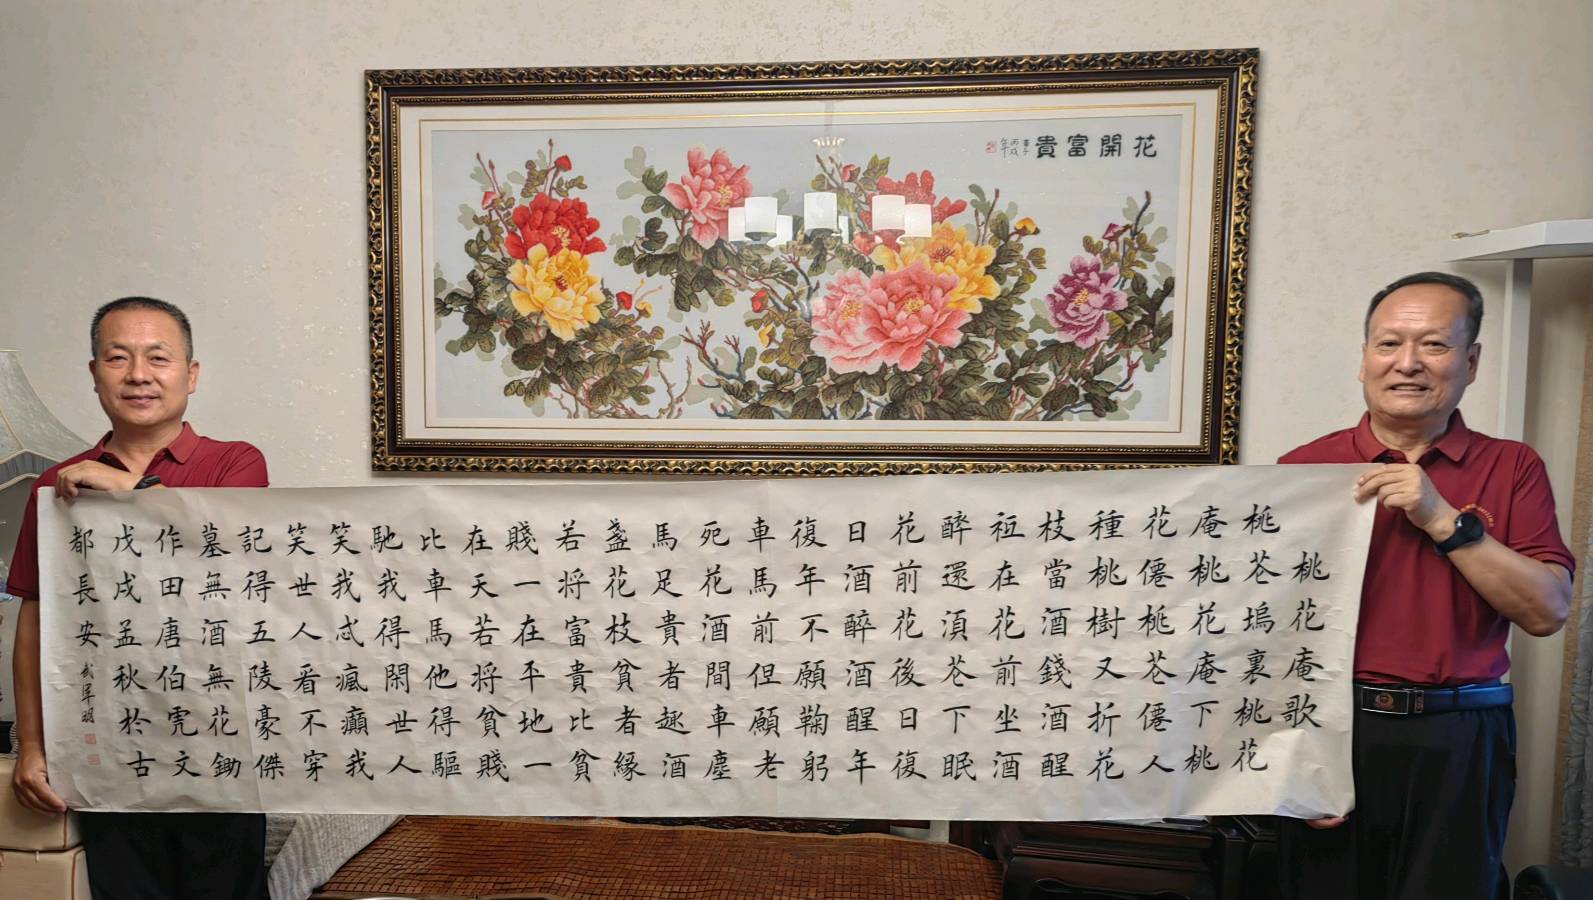 花開富貴
丙戌
桃花庵歌
桃芲塢裏桃花
庵桃花庵下桃
花僊桃芲僊人
種桃樹又折花
枝當酒錢酒醒
祗在花前坐酒
醉還湏芲下眠
花前花後日復
日酒醉酒醒年
復年不願鞠躬
車馬前但願老
死花酒間車塵
馬足貴者趣酒
盞花枝貧者緣
若将富貴比貧
賤一在平地一
在天若将貧賤
比車馬他得驅
馳我得閑世人
笑我忒瘋癲我
笑世人看不穿
記得五陵豪傑
墓無酒無花鋤
作田唐伯虎文
戊戌孟秋於古
都長安